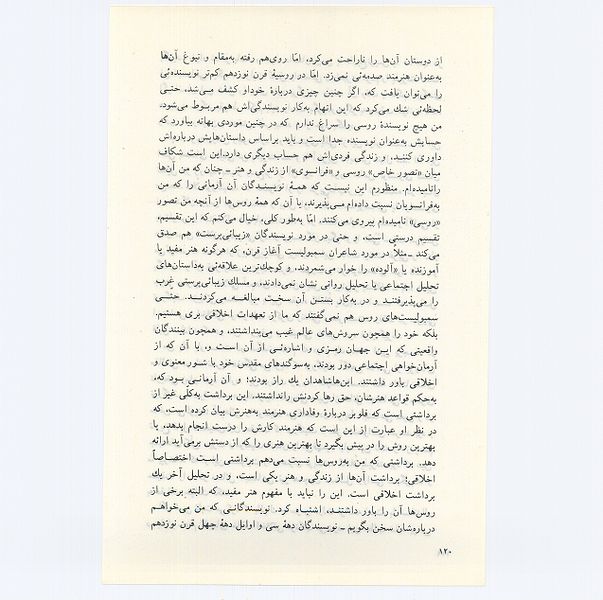 از دوستان آن‌ها را ناراحت می‌کرد، امّا روی‌هم رفته به‌مقام و نبوغ آن‌ها
به‌عنوان هنرمند صدمه‌ئی نمی‌زد. امّا در روسیهٔ قرن نوزدهم کم‌تر نویسنده‌ئی
را می‌توان یافت که، اگر چنین چیزی دربارهٔ خود او کشف می‌شد، حتـی
لحظه‌ئی شك می‌کرد که این اتهام به‌کار نویسندگی‌اش هم مربـوط می‌شود.
من هیچ نویسندهٔ روسی را سراغ ندارم که در چنین موردی بهانه بیاورد که
حسابش به‌عنوان نویسنده جدا است و باید براساس داستان‌هایش درباره‌اش
داوری کننـد، و زندگی فردی‌اش هم حساب دیگری دارد.این است شکاف
میان «تصور خاص» روسی و «فرانسوی» از زندگی و هنر ـ چنان که من آن‌ها
رانامیده‌ام. منظورم این نیست که همـهٔ نویسنـدگان آن آرمانی را که من
به‌فرانسویان نسبت داده‌ام مـی‌پذیرند، یا آن که همهٔ روس‌ها از آنچه من تصور
«روسی» نامیده‌ام پیروی می‌کنند. امّا به‌طور کلی، خیال می‌کنم که این تقسیم،
تقسیم درستی است، و حتی در مورد نویسندگان «زیبائی‌پرست» هم صدق
می‌کند ـ مثلاً در مورد شاعران سمبولیست آغاز قرن، که هرگونه هنر مفید یا
آموزنده یا «آلوده» را خوار می‌شمردند، و کوچك‌ترین علاقه‌ئی به‌داستان‌های
تحلیل اجتماعی یا تحلیل روانی نشان نمی‌دادند، و مسلك زیبائی‌پرستی غرب
را می‌پذیرفتنـد و در به‌کار بستـن آن سخـت مبالغـه می‌کردنـد. حتـی
سمبولیست‌های روس هم نمی‌گفتند که ما از تعهدات اخلاقی بری هستیم.
بلکه خود را همچون سروش‌های عالم غیب می‌پنداشتند، و همچون بینندگان
واقعیتی که ایـن جهـان رمـزی و اشاره‌ئـی از آن است و، یا آن که از
آرمان‌خواهی اجتماعی دور بودند، به‌سوگندهای مقدس خود با شـور معنوی و
اخلاقی باور داشتند. این‌ها شاهدان یك راز بودند؛ و آن آرمانـی بـود که،
به‌حکم قواعد هنرشان، حق رها کردنش را نداشتند. این برداشت به‌کلّی غیر از
برداشتی است که فلوبر دربارهٔ وفاداری هنرمند به‌هنرش بیان کرده است، که
در نظر او عبارت از این است که هنرمند کارش را درست انجام بدهد، یا
بهترین روش را در پیش بگیرد تا بهترین هنری را که از دستش برمی‌آید ارائه
دهد. برداشتی که من به‌روس‌ها نسبت می‌دهم برداشتی اسـت اختصـاصاً
اخلاقی؛ برداشت آن‌ها از زندگی و هنر یکی است، و در تحلیل آخر یك
برداشت اخلاقی است. این را نباید با مفهوم هنر مفید، که البته برخی از
روس‌ها آن را باور داشتنـد، اشتبـاه کرد. نویسندگانـی که من می‌خواهـم
درباره‌شان سخن بگویم ـ نویسندگان دههٔ سی و اوایل دههٔ چهل قرن نوزدهم
۱۲۰